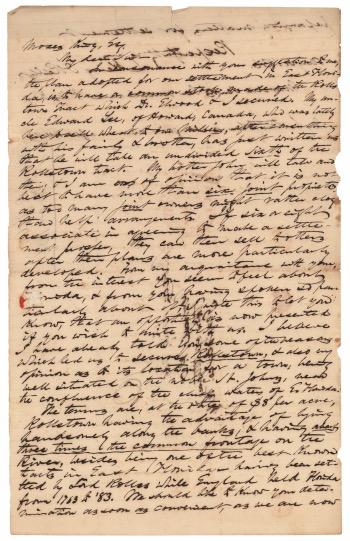 Moses King, Esq.
My dear Sir
In accordance with your
the plan adopted for our settlement in East Flori-
da, is to have a common stock made of the Rolls-
town tract which Dr. Elwood & I secured. My un-
cle Edward Lee, of Canada, who was lately
with his family & brother, has just written us
that he will take an undivided sixth of the
Rollestown tract. My brother will take
I am of opinion that it is not
best to have more than six joint proprietors
as too many joint owners might rather clog
than help arrangements. If six or eight
associate in agreeing to make a settle-
ment proper, they can then sell to others
after their plans are more particularly
developed. From my acquaintance with you,
from the interest you seem to feel about
Florida, & from you having spoken so par-
ticularly about it, I write this to let you
know, that an opportunity is now presented
if you wish to unite with us. I believe
I have already told you some of the reasons
which led us to secure Rollestown, & also my
opinion as to its location for a town, being
well situated on the St. Johns, near
the confluence of the chief waters of E. Florida.
The terms are, at the rate of $8 per acre,
Rollstown having the advantage of lying
handsomely along the banks, & having about
three times the common frontage on the
River, besides being one of the best known
tracts in East Florida, having been set-
tled by Lord Rolles while England held Florida
from 1763 to '83. We should like to know your deter-
mination as soon as convenient, as we are now